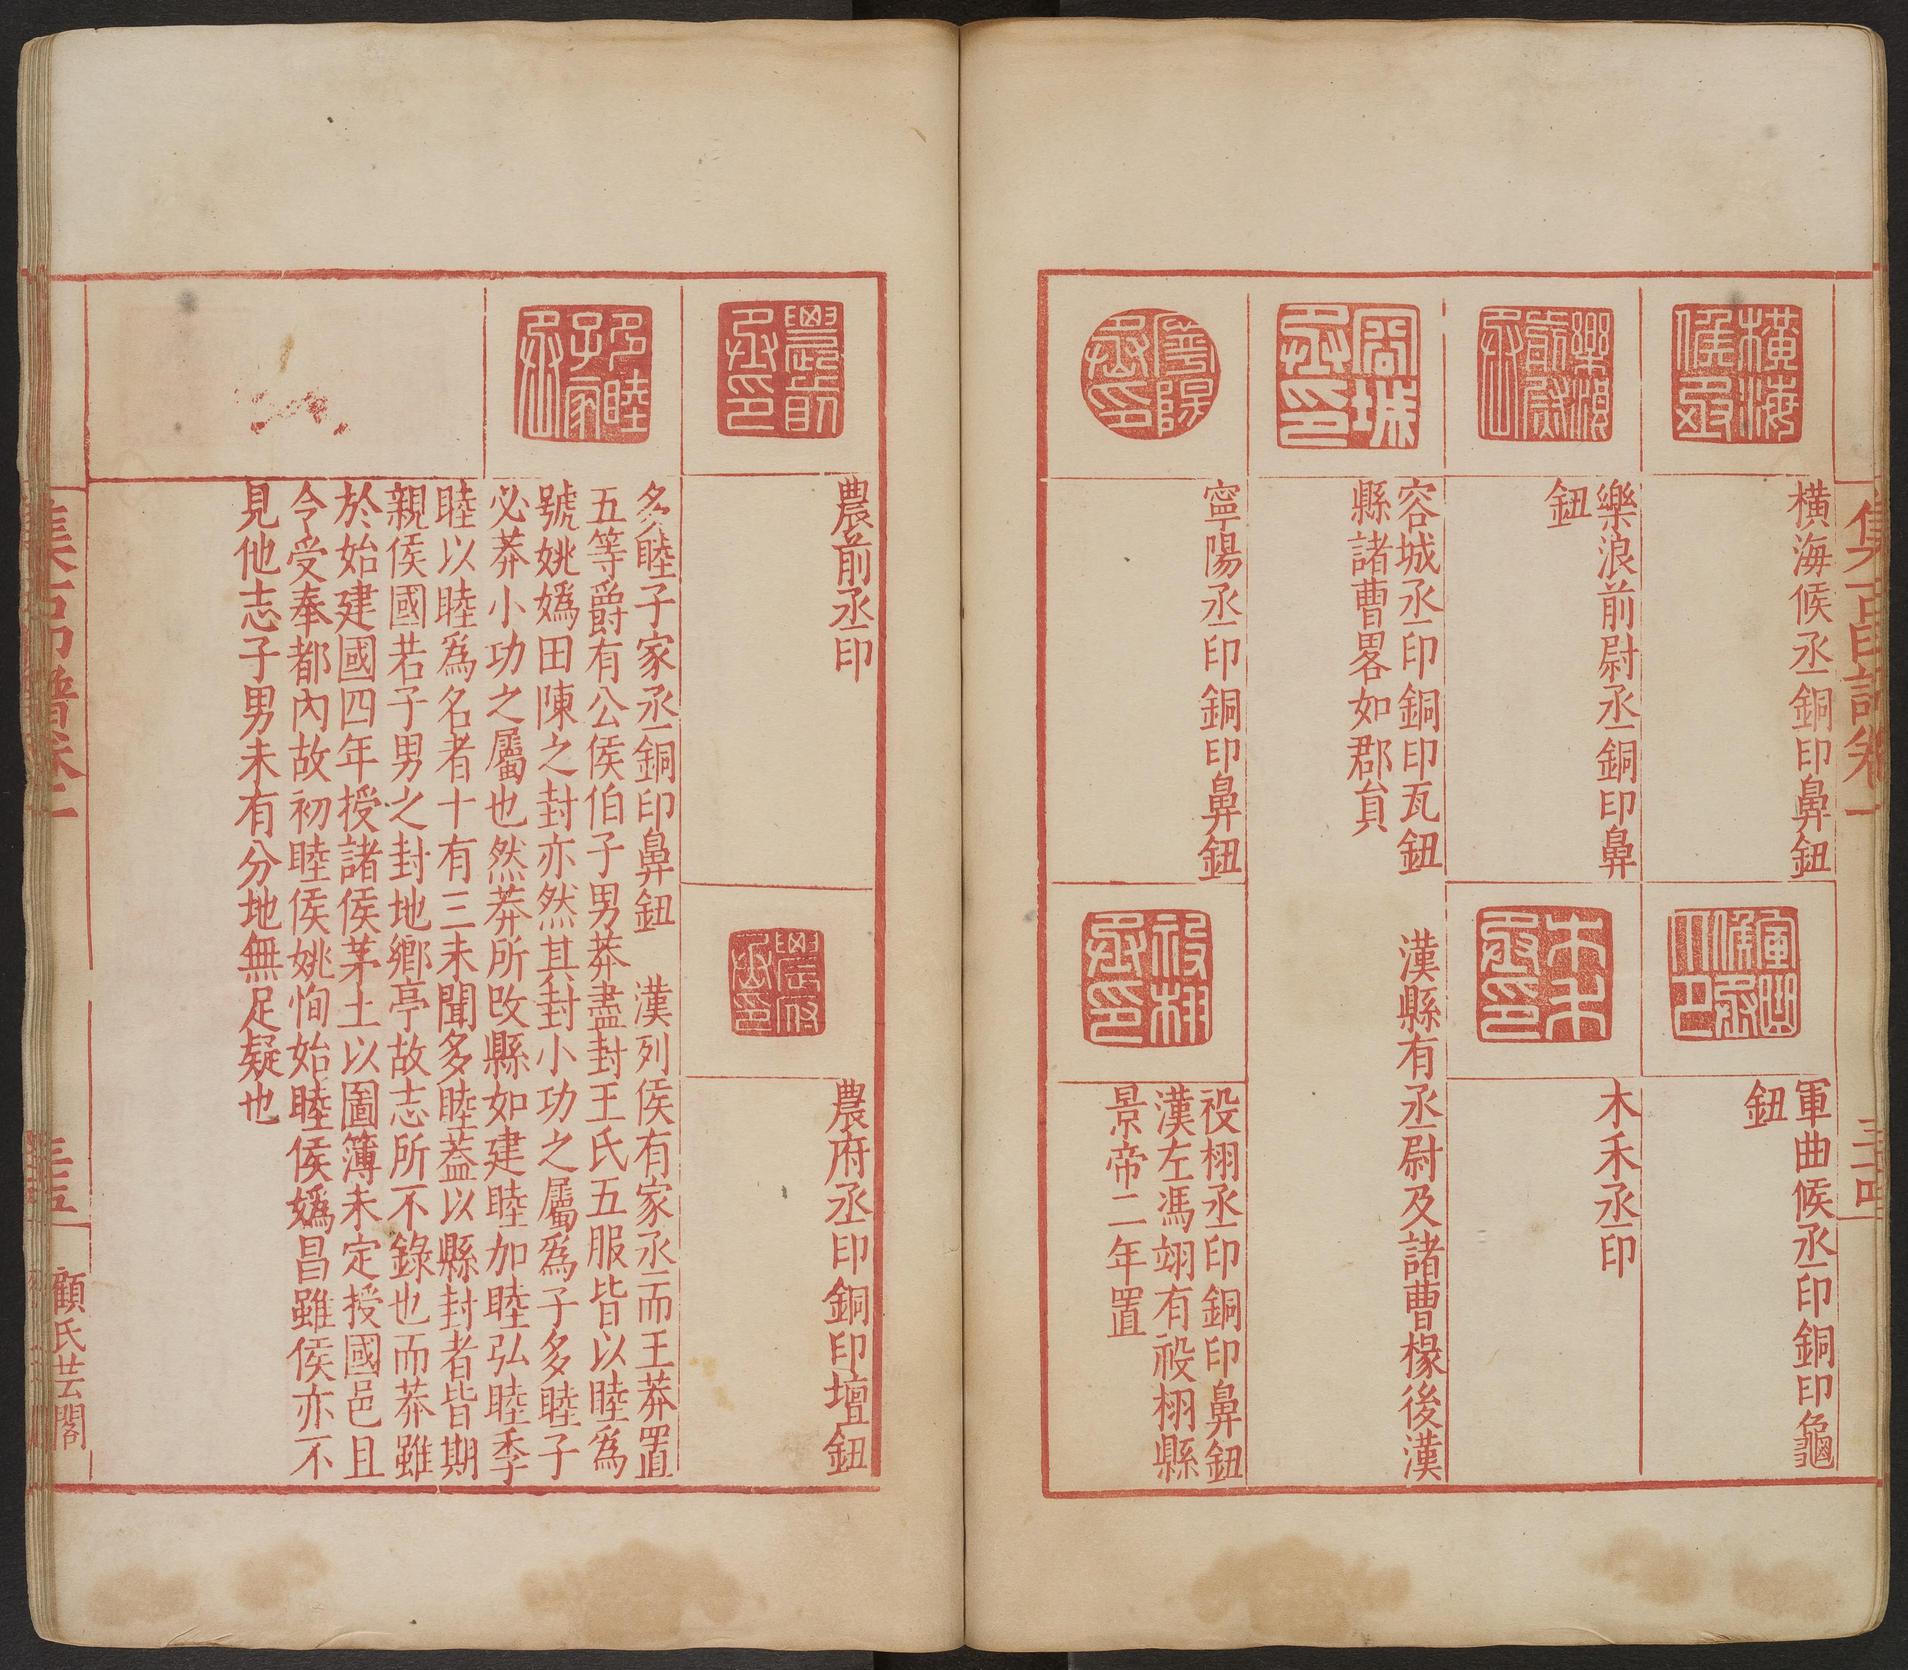 橫海候丞
橫海候丞銅印鼻鈕
軍曲候丞印
軍曲候丞印銅印龜
鈕
樂浪前尉丞
樂浪前尉丞銅印鼻
鈕
木禾丞印
木禾丞印
容城丞印
容城丞印銅印瓦鈕　漢縣有丞尉及諸曹椽後漢
縣諸曹畧如郡貟
寧陽丞印
寧陽丞印銅印鼻鈕
祋栩丞印
祋栩丞印銅印鼻鈕
漢左馮翊有祋栩縣
景帝二年置
農前丞印
農前丞印
農府丞印
農府丞印銅印壇鈕
多睦子家丞
多睦子家丞銅印鼻鈕　漢列侯有家丞而王莽置
五等爵有公侯伯子男莽盡封王氏五服皆以睦爲
號姚嬀田陳之封亦然其封小功之屬爲子多睦子
必莽小功之屬也然莽所改縣如建睦加睦弘睦季
睦以睦爲名者十有三未聞多睦蓋以縣封者皆期
親侯國若子男之封地鄉亭故志所不錄也而莽雖
於始建國四年授諸侯茅土以圖簿未定授國邑且
令受奉都內故初睦侯姚恂始睦侯嬀昌雖侯亦不
見他志子男未有分地無足疑也
顧氏芸閣